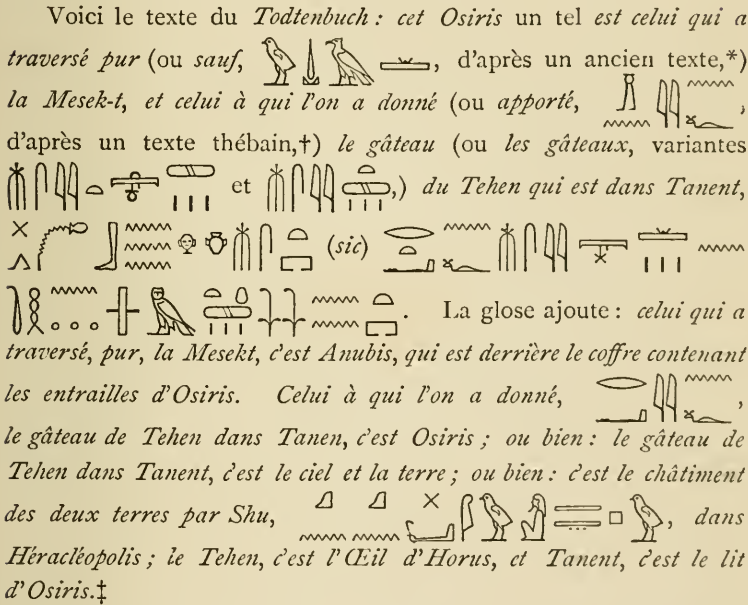 Voici le texte du Todtenbuch : cet Osiris un tel est celui qui a
traversé pur (ou sauf, , d'après un ancien texte,*)
la Mesek-t, et celui à qui l'on a donné (ou apporté, ,
d'après un texte thébain,†) le gâteau (ou les gâteaux, variantes
et ,) du Tehen qui est dans Tanent,
(sic)
. La glose ajoute : celui qui a
traversé, pur, la Mesekt, c'est Anubis, qui est derrière le coffre contenant
les entrailles d'Osiris. Celui à qui l'on a donné, ,
le gâteau de Tehen dans Tanen, c'est Osiris ; ou bien : le gâteau de
Tehen dans Tanent, c'est le ciel et la terre ; ou bien : c'est le châtiment
des deux terres par Shu, , dans
Héracléopolis ; le Tehen, c'est l'Œil d'Horus, et Tanent, c'est le lit
d'Osiris.‡